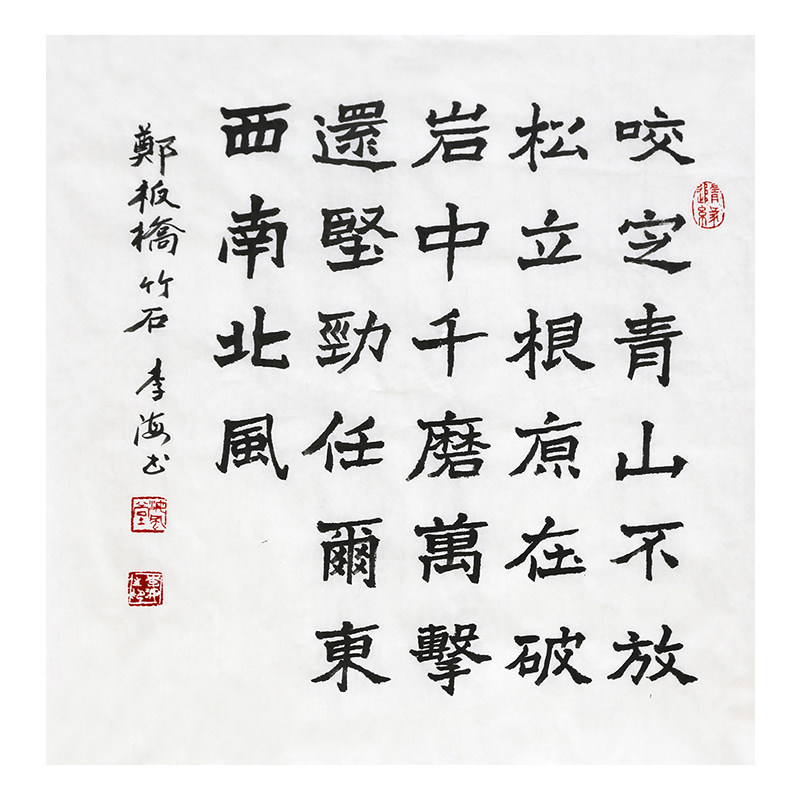 咬定青山不放
松立根原在破
岩中千磨萬擊
還堅勁任爾東
西南北風
鄭板橋 竹石 李海书